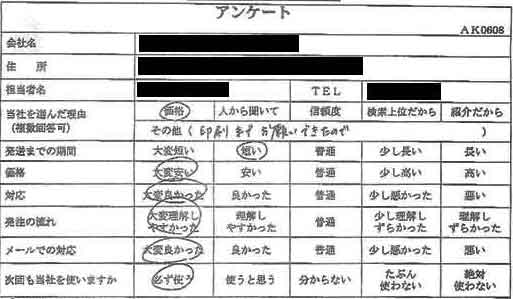 アンケート
AK0608
会社名
住 所
担当者名 TEL
当社を選んだ理由 (複数回答可) 価格 人から聞いて 信頼度 検索上位だから 紹介だから
その他 ( 印刷まで お願いできたので )
発送までの期間 大変短い 短い 普通 少し長い 長い
価格 大変安い 安い 普通 少し高い 高い
対応 大変良かった 良かった 普通 少し悪かった 悪い
発注の流れ 大変理解しやすかった 理解しやすかった 普通 少し理解しずらかった 理解しずらかった
メールでの対応 大変良かった 良かった 普通 少し悪かった 悪い
次回も当社を使いますか 必ず使う 使うと思う 分からない たぶん使わない 絶対使わない